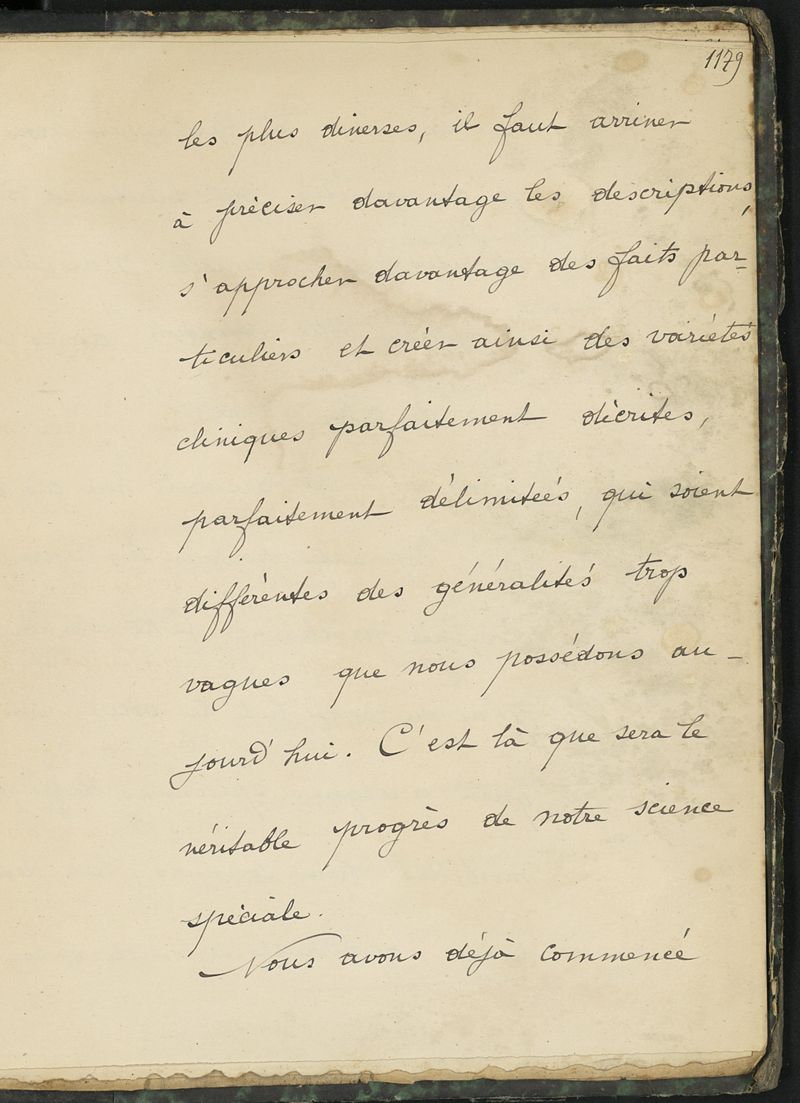 1179
les plus diverses, il faut arriver
à préciser davantage les descriptions,
s'approcher davantage des faits par-
ticuliers et créer ainsi des variétés
cliniques parfaitement décrites,
parfaitement délimitées, qui soient
différentes des généralités trop
vagues que nous possédons au-
jourd'hui. C'est là que sera le
véritable progrès de notre science
spéciale.
Nous avons déjà commencé